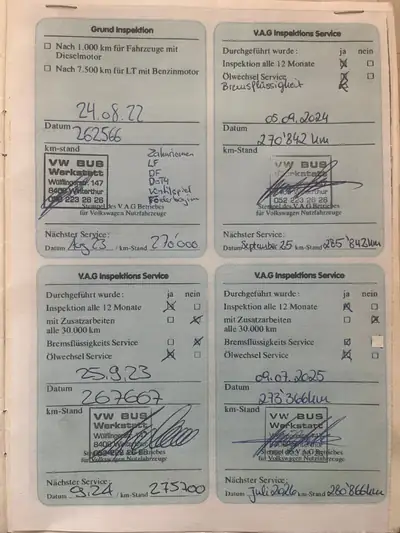 Grund Inspektion
☐ Nach 1.000 km für Fahrzeuge mit
Dieselmotor
☐ Nach 7.500 km für LT mit Benzinmotor
24.08.22
Datum
262566
km-stand
VW BUS
Werkstatt
Wülflingerstr. 147
8408 Winterthur
052 223 28 28
Stempel des V.A.G Betriebes
für Volkswagen Nutzfahrzeuge
Zahnriemen
LF
DF
DOT4
Ventilspiel
Nächster Service:
Datum Aug 23 / km-Stand 270'000
V.A.G Inspektions Service
Durchgeführt wurde: ja nein
Inspektion alle 12 Monate ☒ ☐
Ölwechsel Service ☒ ☐
Bremsflüssigkeit
05.09.2024
Datum
270'842 km
km-Stand
VW BUS
Werkstatt
052 223 28 28
Stempel des V.A.G Betriebes
für Volkswagen Nutzfahrzeuge
Nächster Service:
Datum September 25 km-Stand 285'842km
V.A.G Inspektions Service
Durchgeführt wurde: ja nein
Inspektion alle 12 Monate ☒ ☐
mit Zusatzarbeiten ☐ ☒
alle 30.000 km
Bremsflüssigkeits Service ☐ ☒
Ölwechsel Service ☒ ☐
25.9.23
Datum
267667
km-Stand
VW BUS
Werkstatt
für Volkswagen Nutzfahrzeuge
Nächster Service:
Datum 9.24 / km-Stand 275700
V.A.G Inspektions Service
Durchgeführt wurde: ja nein
Inspektion alle 12 Monate ☒ ☐
mit Zusatzarbeiten ☐ ☒
alle 30.000 km
Bremsflüssigkeits Service ☒ ☐
Ölwechsel Service ☒ ☐
09.07.2025
Datum
273'366km
km-Stand
VW BUS
Werkstatt
für Volkswagen Nutzfahrzeuge
Nächster Service:
Datum Juli 2026 km-Stand 280'866km